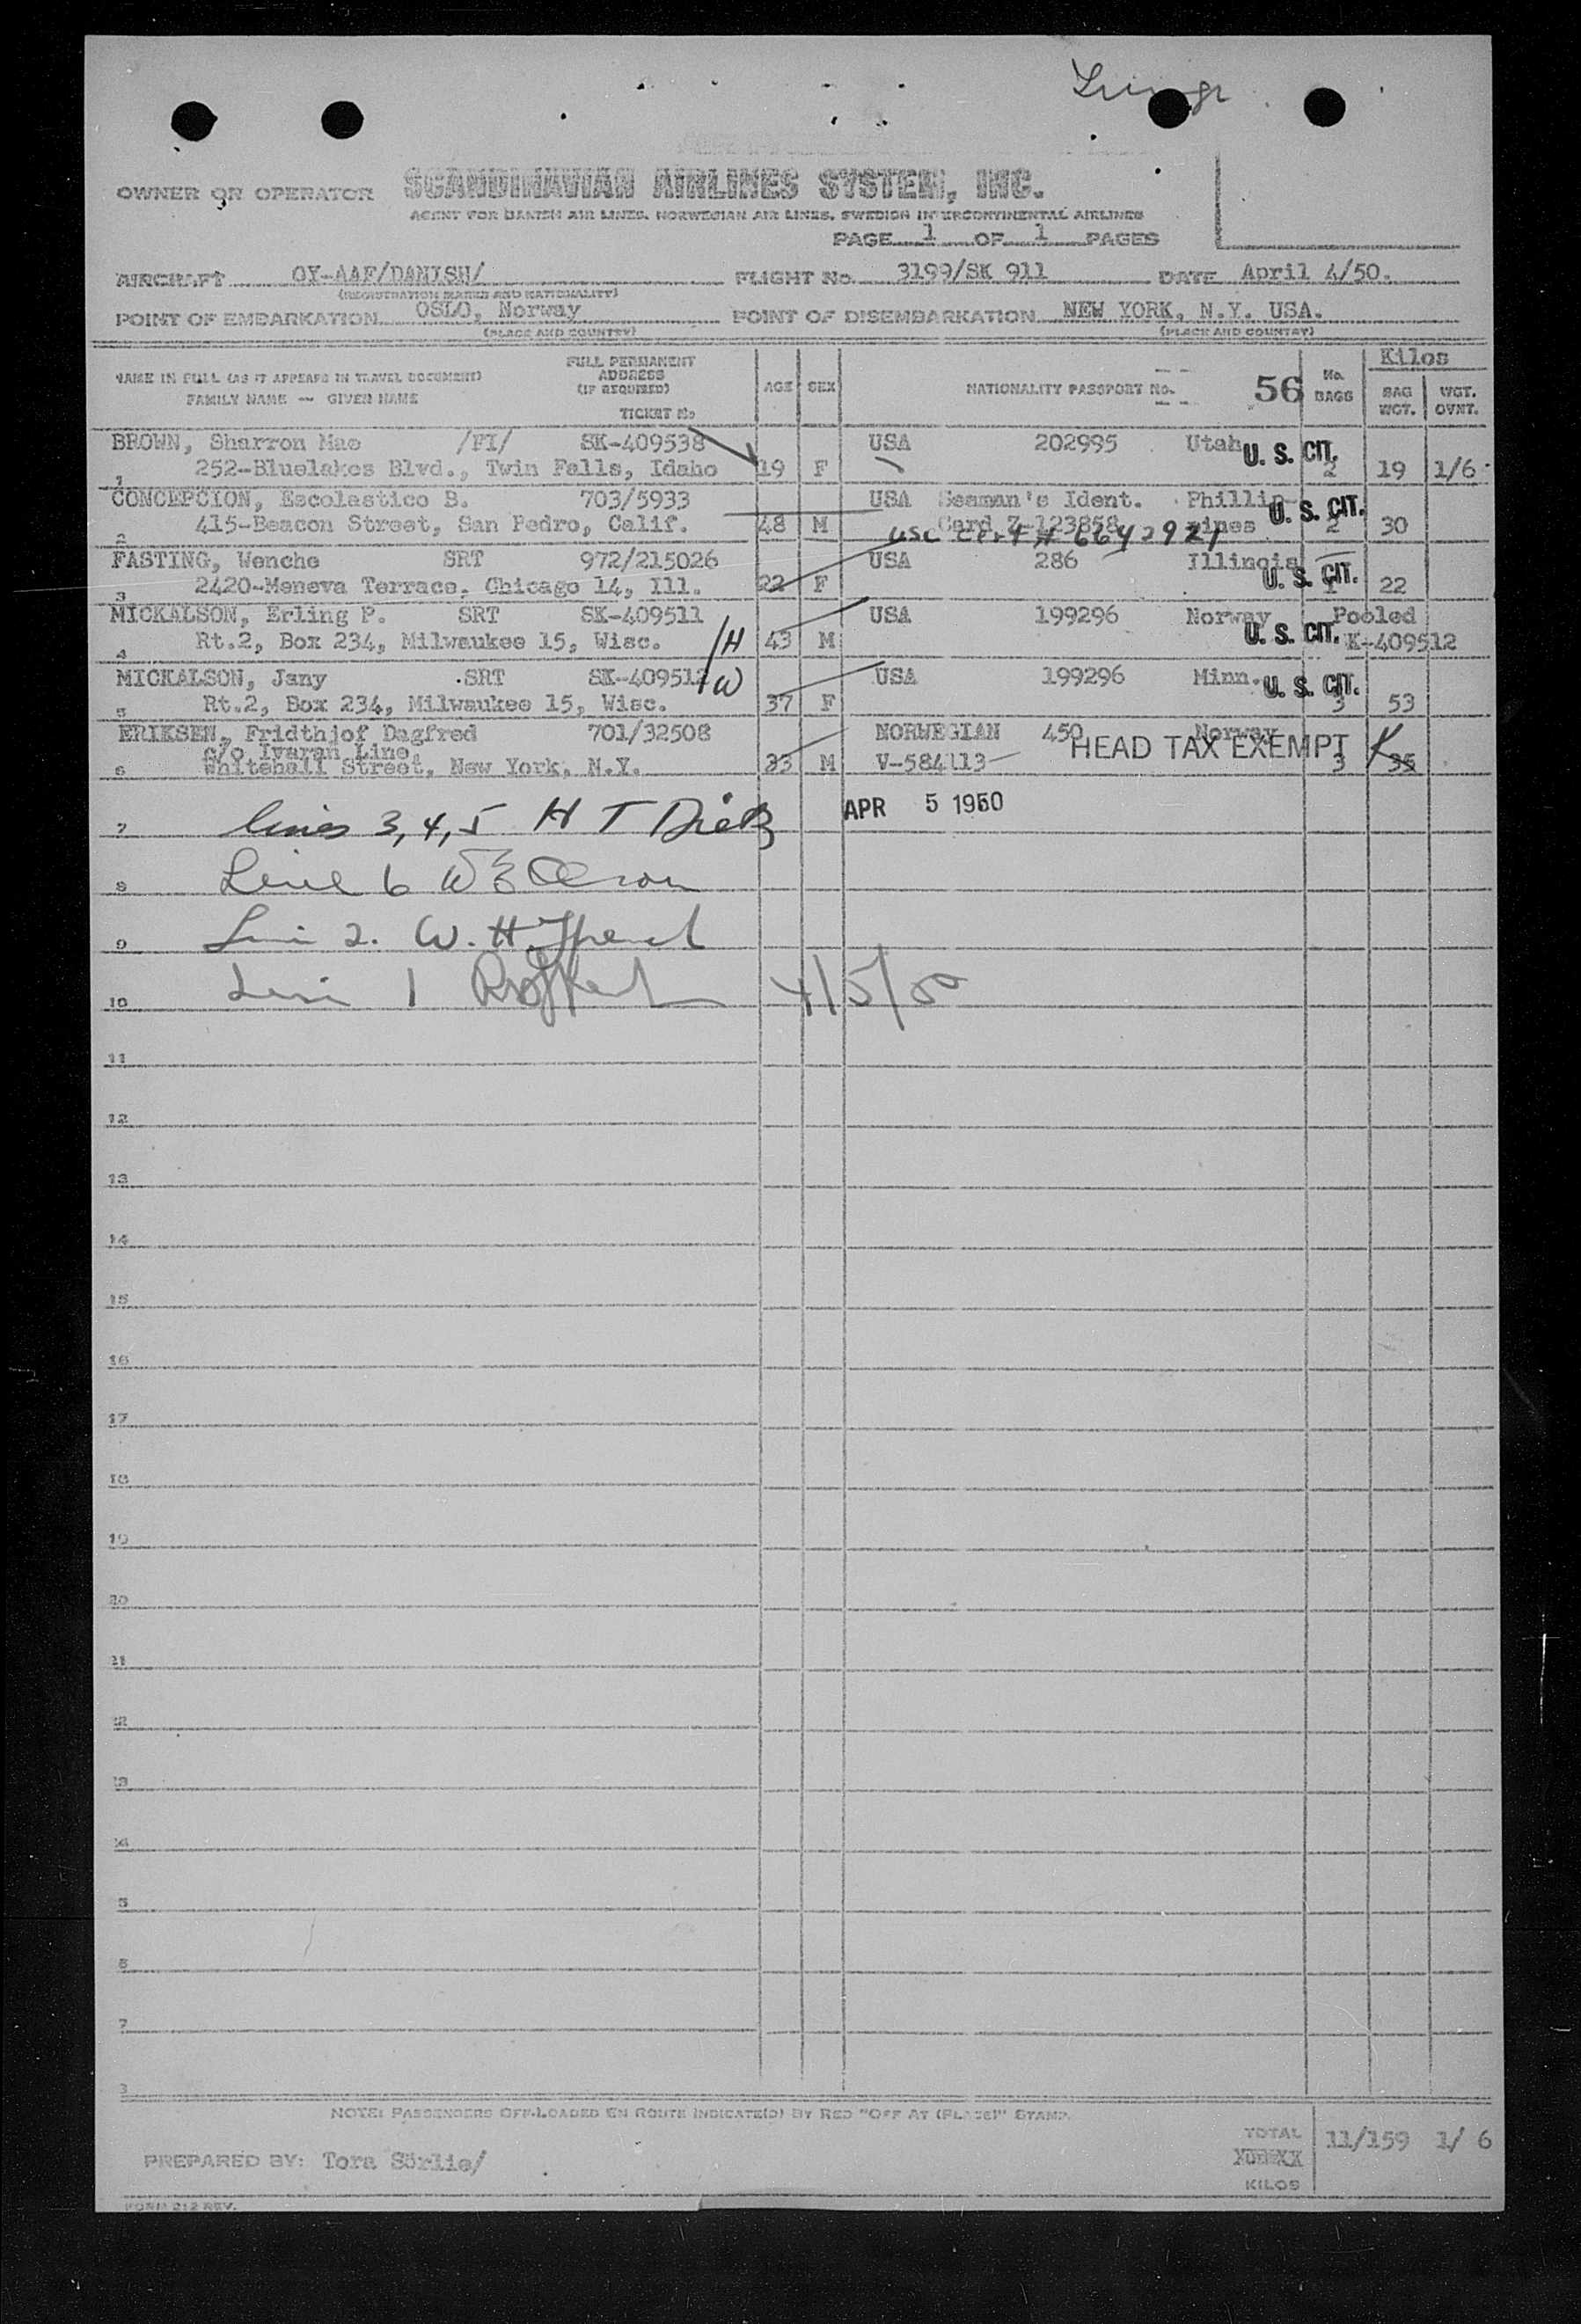 OWNER OR OPERATOR SCANDINAVIAN AIRLINES SYSTEM, INC.
AGENT FOR DANISH AIR LINES, NORWEGIAN AIR LINES, SWEDISH INTERCONTINENTAL AIRLINES
PAGE 1 OF 1 PAGES
AIRCRAFT OY-AAF/DANISH/ FLIGHT No. 3199/SK 911 DATE April 4/50.
(REGISTRATION MARKS AND NATIONALITY)
POINT OF EMBARKATION OSLO, Norway POINT OF DISEMBARKATION NEW YORK, N.Y. USA.
(PLACE AND COUNTRY) (PLACE AND COUNTRY)
NAME IN FULL (AS IT APPEARS IN TRAVEL DOCUMENT)
FAMILY NAME — GIVEN NAME
FULL PERMANENT
ADDRESS
(IF REQUIRED)
TICKET No
AGE SEX NATIONALITY PASSPORT No. 56 No. BAGS Kilos
BAG WGT. WGT. OVWT.
BROWN, Sharron Mae /FI/ SK-409538 USA 202995 Utah U. S. CIT.
1 252-Bluelakes Blvd., Twin Falls, Idaho 19 F 2 19 1/6
CONCEPCION, Escolastico B. 703/5933 USA Seaman's Ident. Phillip-
2 415-Beacon Street, San Pedro, Calif. 48 M Card Z 123858 pines U. S. CIT. 2 30
USC Cert # 6642921
FASTING, Wenche SRT 972/215026 USA 286 Illinois
3 2420-Meneva Terrace, Chicago 14, Ill. 22 F U. S. CIT. 1 22
MICKALSON, Erling P. SRT SK-409511 USA 199296 Norway Pooled
4 Rt.2, Box 234, Milwaukee 15, Wisc. H 43 M U. S. CIT. K-409512
MICKALSON, Jany SRT SK-409512 W USA 199296 Minn.
5 Rt.2, Box 234, Milwaukee 15, Wisc. 37 F U. S. CIT. 3 53
ERIKSEN, Fridthjof Dagfred 701/32508 NORWEGIAN 450 Norway
c/o Ivaran Line,
6 Whitehall Street, New York, N.Y. 33 M V-584113 HEAD TAX EXEMPT 3 35
7 lines 3, 4, 5 H T Dietz APR 5 1950
8 Line 6 W E Olson
9 Line 2. W. H
10 Line 1 4/5/50
11
12
13
14
15
16
17
18
19
20
21
22
23
24
5
6
7
8
NOTE: PASSENGERS OFF-LOADED EN ROUTE INDICATE(D) BY RED "OFF AT (PLACE)" STAMP.
TOTAL 11/159 1/ 6
PREPARED BY: Tora Sörlie/
KILOS
FORM 212 REV.